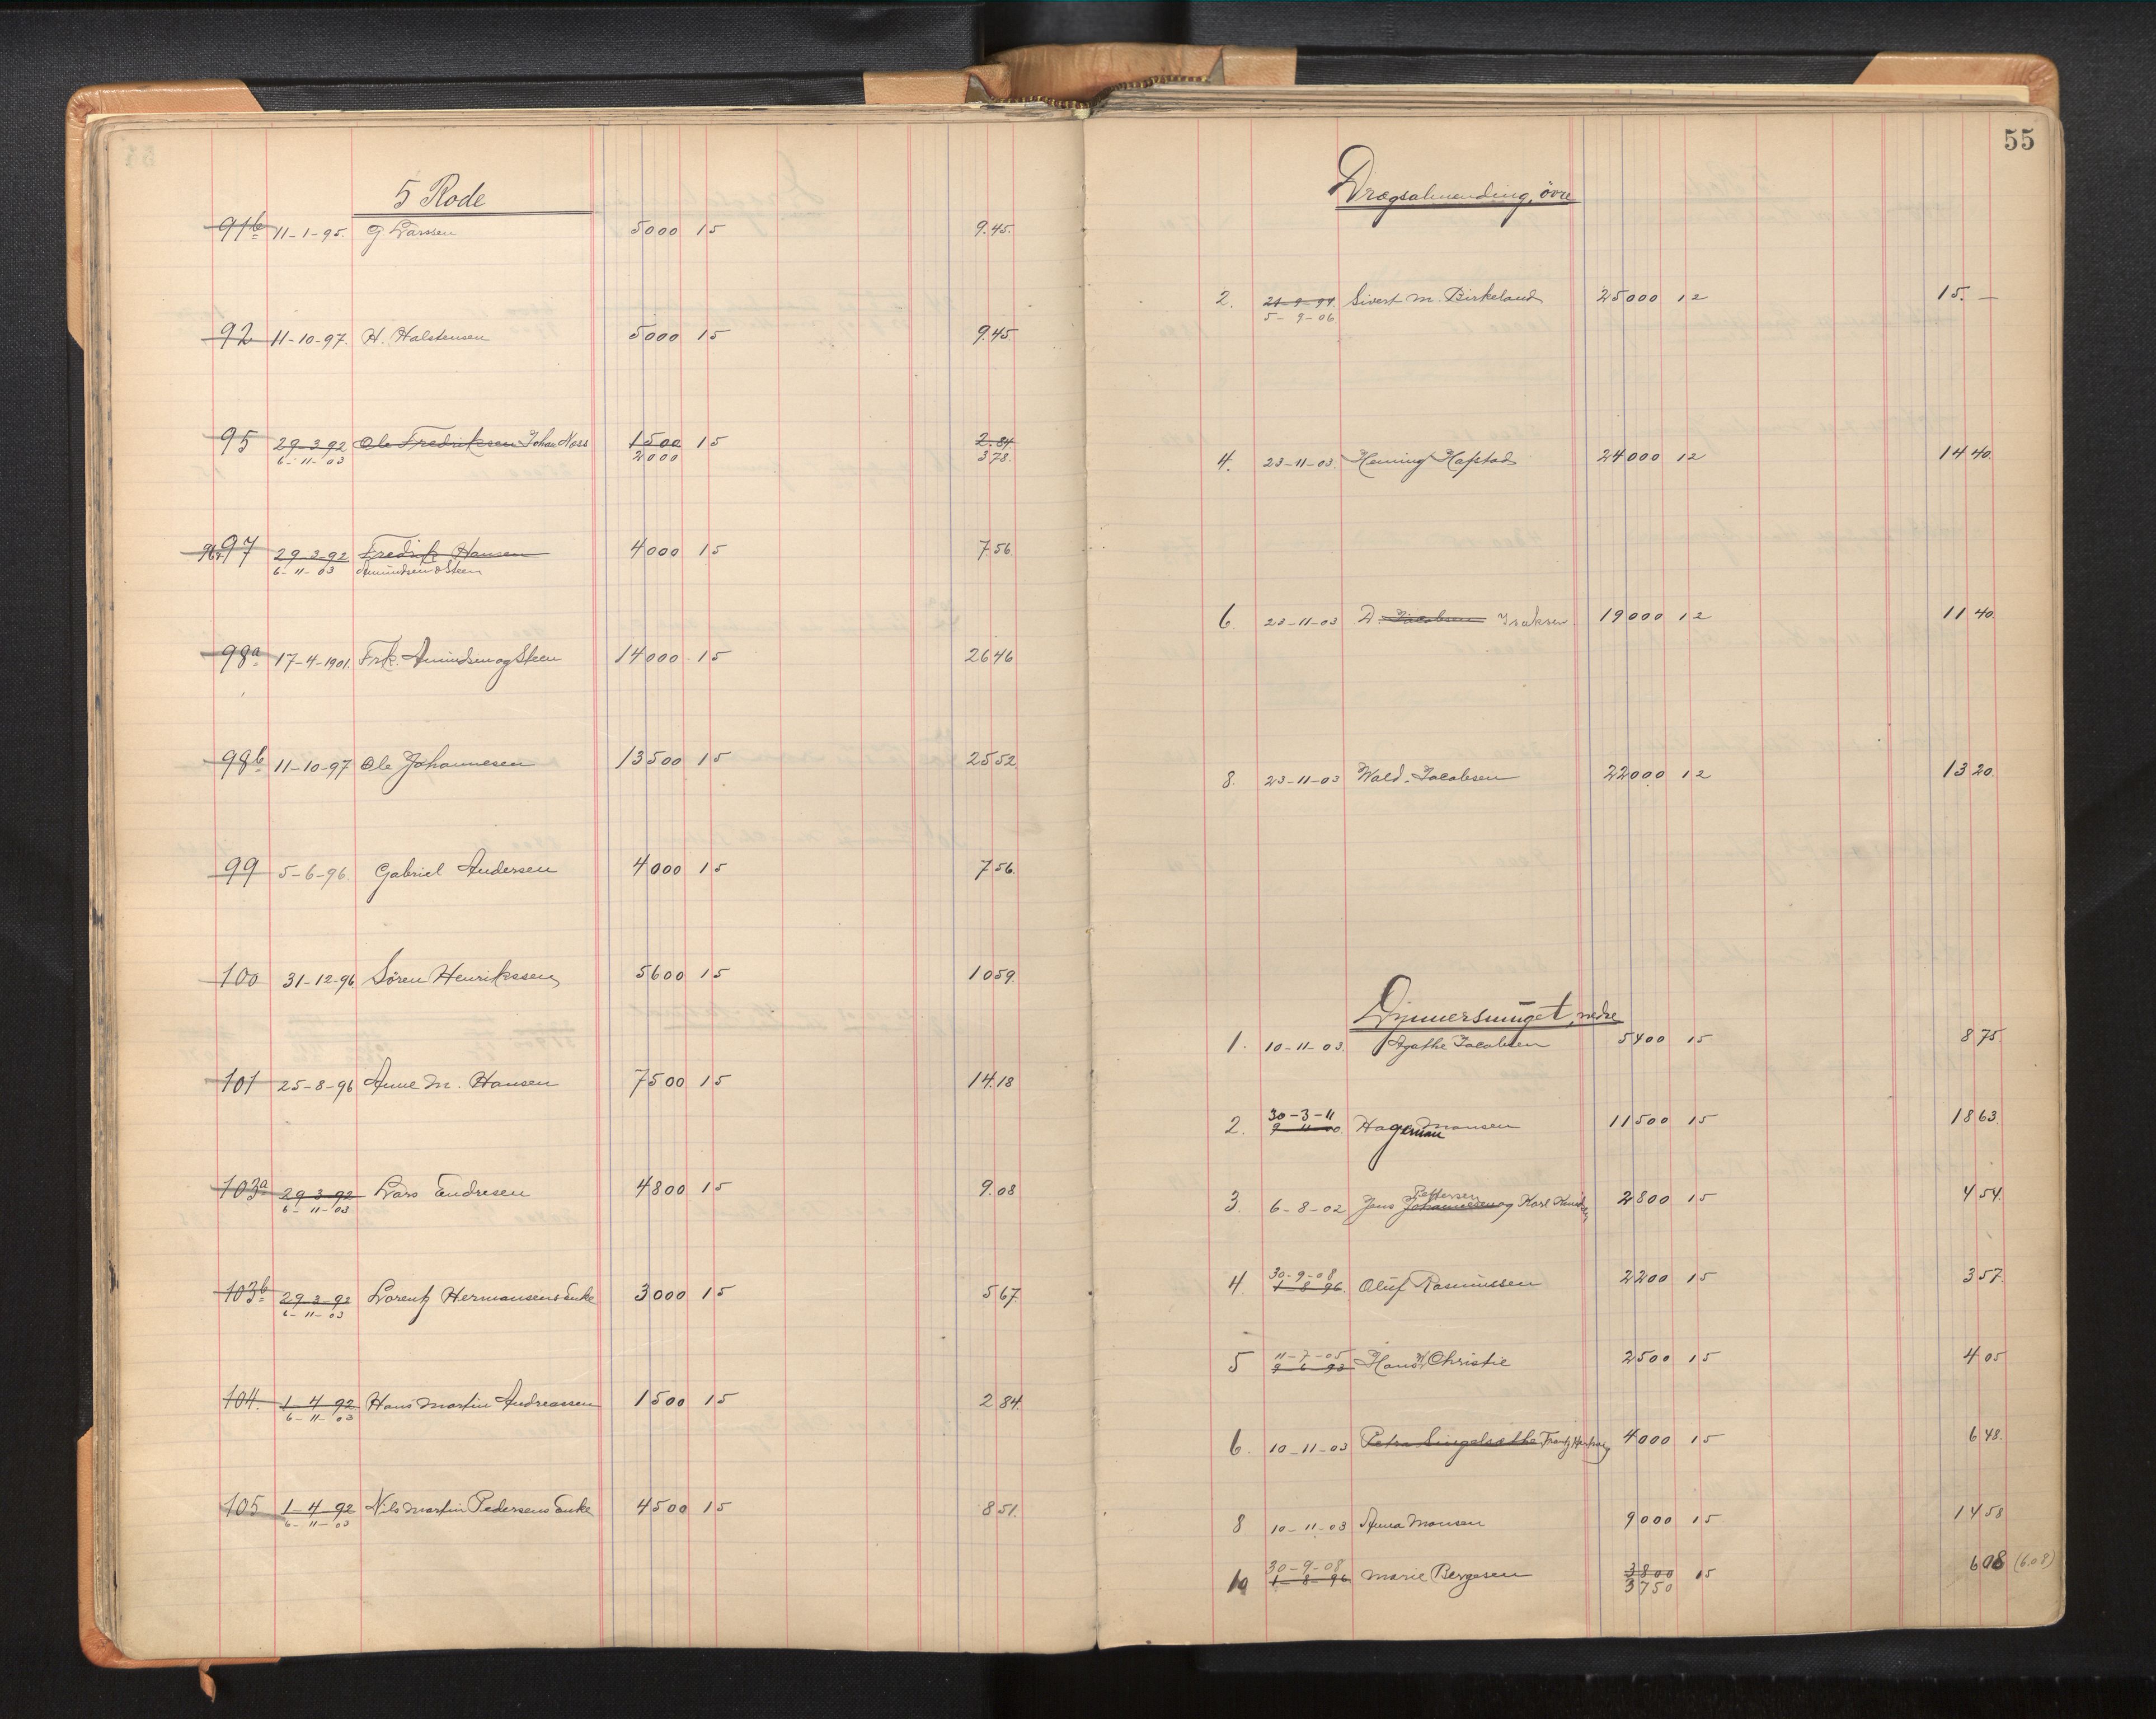 5 Rode
91b 11-1-95. G Larssen 5000 15 9.45.
92 11-10-97. H. Halstensen 5000 15 9.45.
95 29-3-92 Ole Fredriksen Johan Næss 1500 15 2.84
6-11-03 2000 378.
97 29-3-92 Fredrik Hansen 4000 15 756
6-11-03 Amundsen & Steen
98a 17-4-1901. Frk. Amundsen og Steen 14000 15 2646
98b 11-10-97 Ole Johannesen 13500 15 2552
99 5-6-96. Gabriel Andersen 4000 15 756.
100 31-12-96. Sören Henrikssen 5600 15 1059.
101 25-8-96 Anne M. Hansen 7500 15 14.18
103a 29-3-92 Lars Endresen 4800 15 9.08
6-11-03
103b 29-3-92 Lorentz Hermansens Enke 3000 15 567
6-11-03
104. 1-4-92 Hans Martin Andreassen 1500 15 284.
6-11-03
105 1-4-92 Nils Martin Pedersens Enke 4500 15 851.
6-11-03
55
Dragsalmending, övre
2. Sivert M. Birkeland 25000 12 15. —
5-9-06
4. 23-11-03. Heming Hafstad 24000 12 1440.
6. 23-11-03 D. Jacobsen Isaksen 19000 12 1140.
8. 23-11-03 Wald. Jacobsen 22000 12 1320.
nedre
1. 10-11-03. Agathe Jacobsen 5400 15 875.
30-3-11
2. 9-11-00. Hageman Monsen 11500 15 1863.
Pettersen
3. 6-8-02 Jens Johannesen og Karl Knudsen 2800 15 454.
30-9-08
4 1-8-96. Oluf Rasmussen 2200 15 357.
11-7-05
5 9-6-93 Hans Christie 2500 15 405
6. 10-11-03 Petra Frantz 4000 15 648.
8 10-11-03 Anna Monsen 9000 15 1458
30-9-08
10 1-8-96 Marie Bergesen 3800 15 608 (6.08)
3750